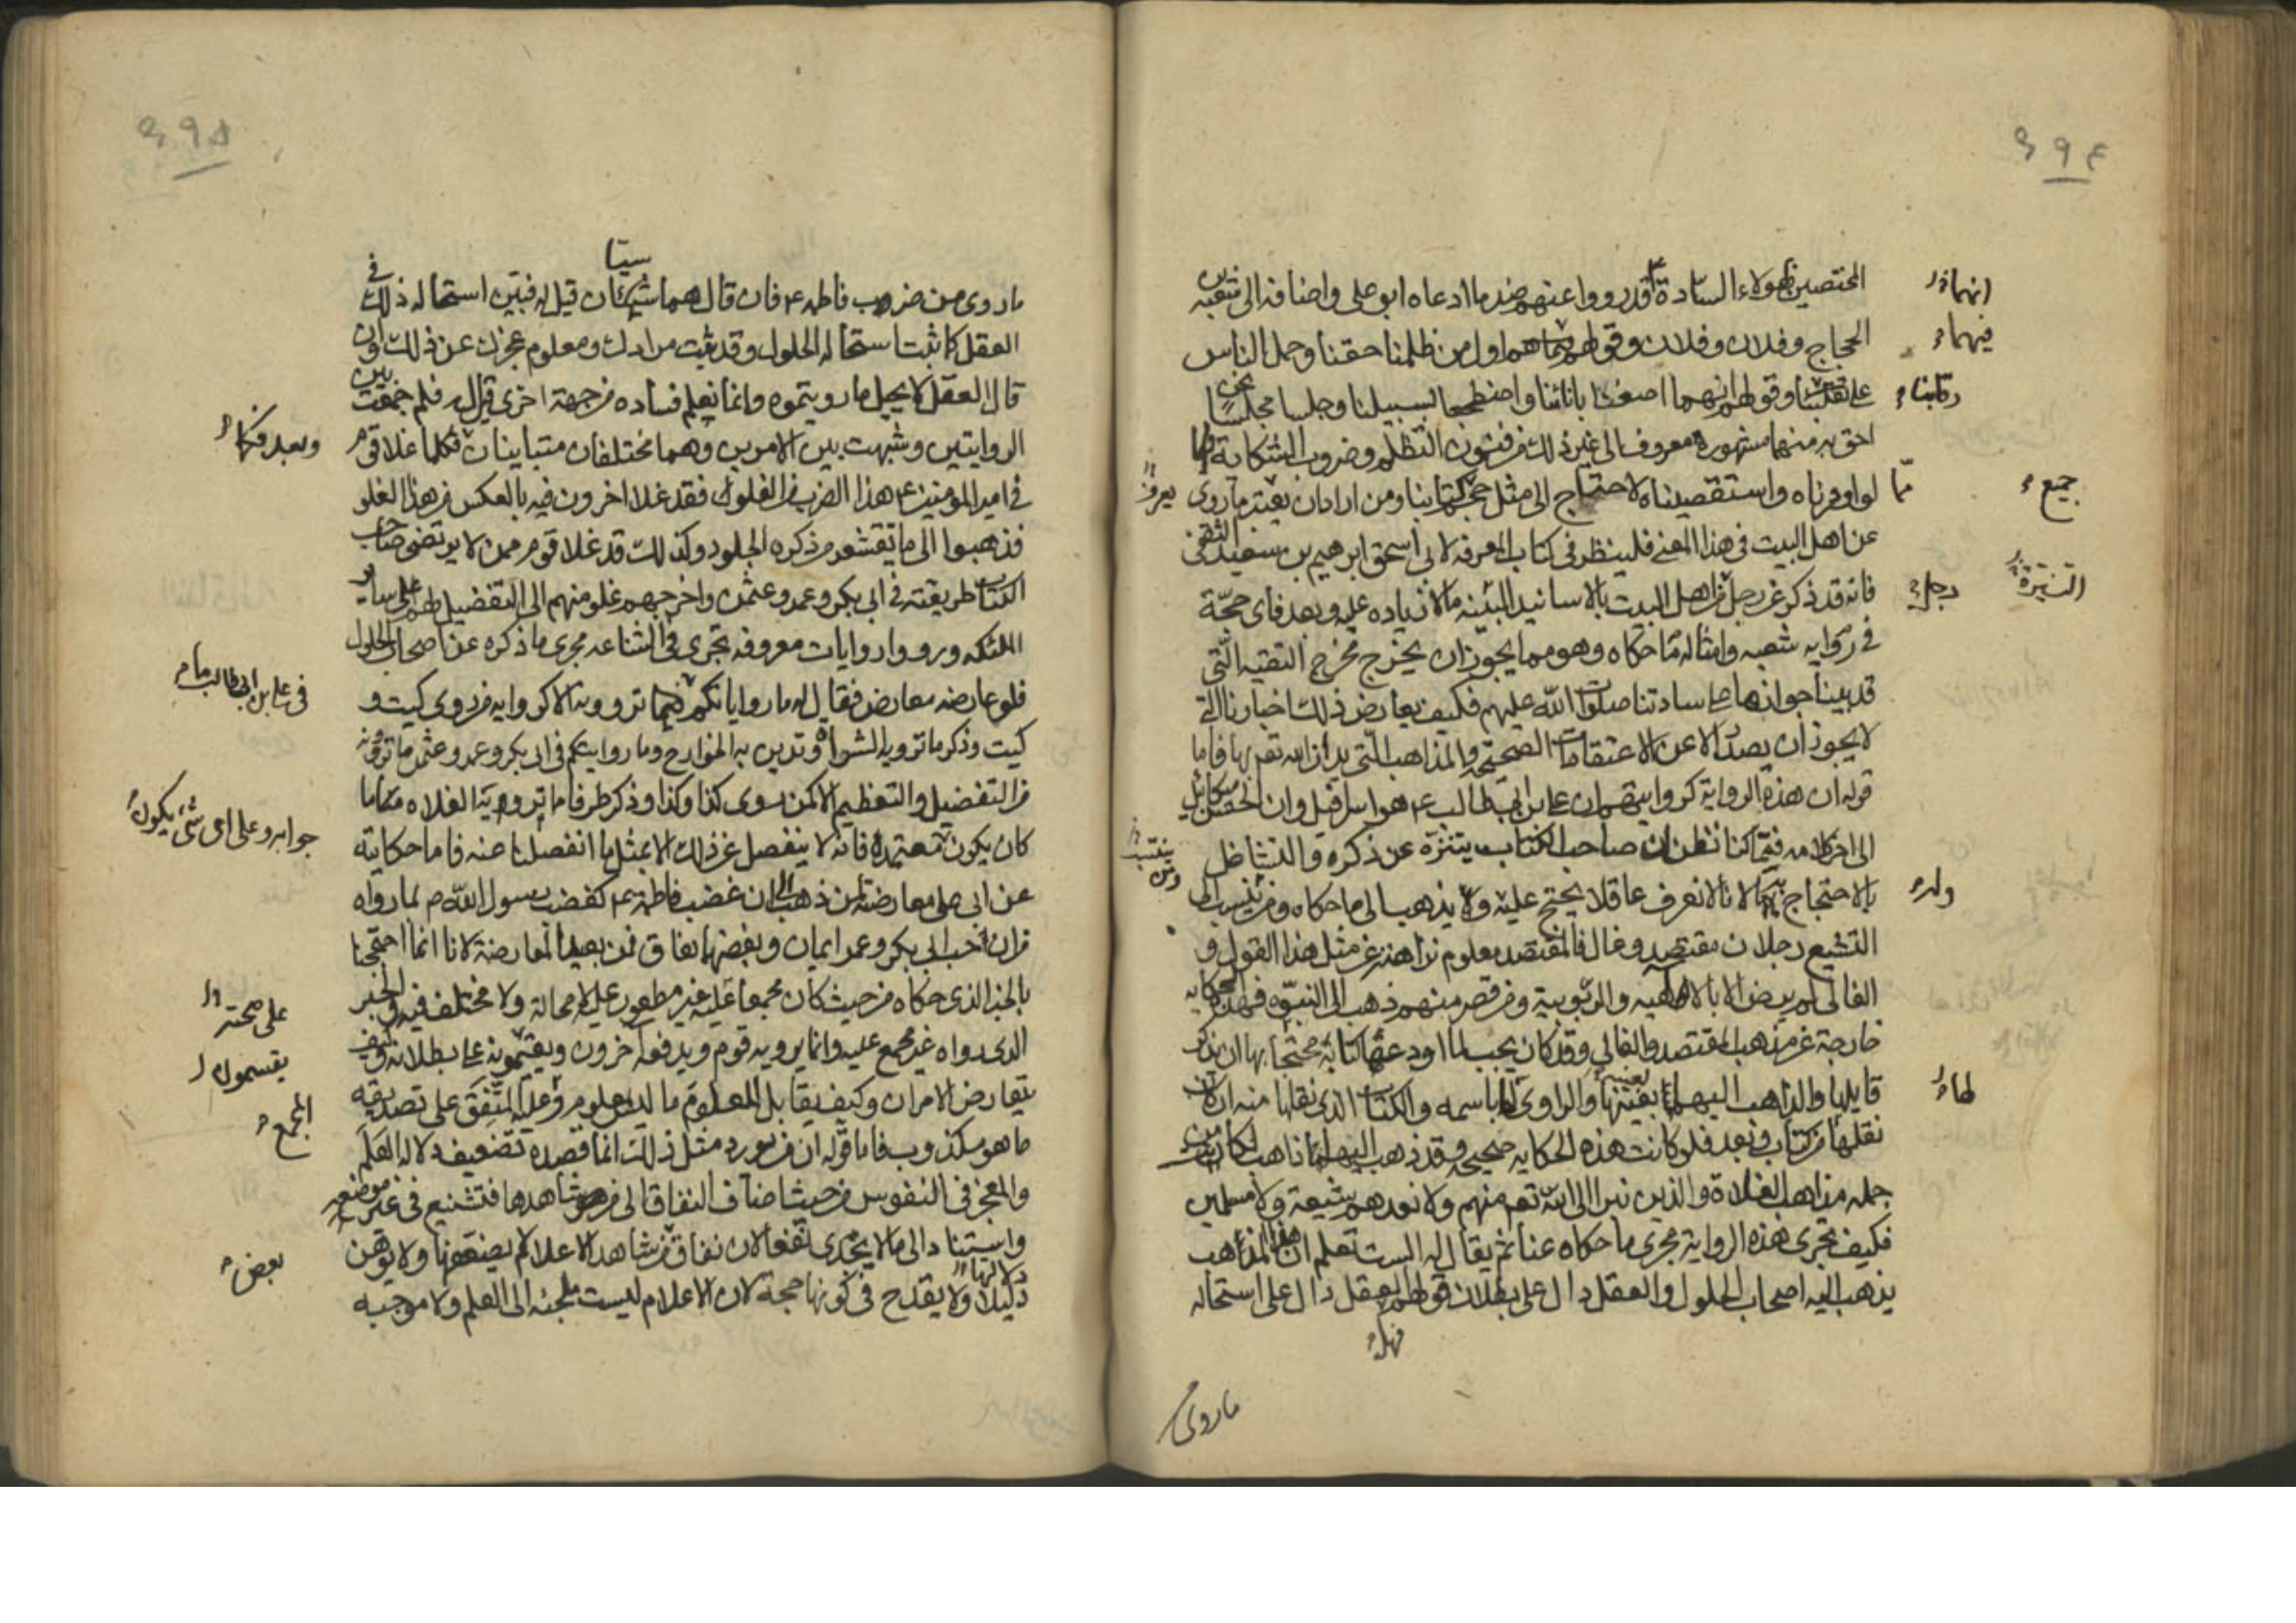 ٤٩٤
المختصين بهولاء السادة قد رووا عنهم ضد ما ادعاه ابو علي واضافه الى شعبه
انهما
الحجاج وفلان وفلان وقولهم هما اول من ظلمنا حقنا وحمل الناس
فيهما
على رقابنا وقولهم انهما اصغيا بانائنا واضطجعا بسبيلنا وجلسا مجلسا نحن
رقابنا
احق به منهما مشهورة معروف الى غير ذلك من فنون التظلم وضروب الشكاية
لو اوردناه واستقصيناه لاحتاج الى مثل حجم كتابنا ومن اراد ان يعتبر ما روى
مما
جميع
عن اهل البيت في هذا المعنى فلينظر في كتاب المعرفه لابي اسحق ابرهيم بن سعيد الثقفي
فانه قد ذكر عن رجل من اهل البيت بالاسانيد البينه ما لا زياده عليه وبعد فاى حجّة
رجل
النيرة
في رواية شعبه وامثاله مما حكاه وهو مما يجوز ان يخرج مخرج التقيه التّى
قد بينا جوازها على سادتنا صلوات الله عليهم فكيف يعارض ذلك اخبارنا التي
لا يجوز ان يصدر الا عن الاعتقادات الصحيحة والمذاهب التّى يدان الله تعم بها فاما
قوله ان هذه الرواية كروايتهم ان على بن ابيطالب ع هو اسرافيل وان الحسن ميكائيل
الى اخر كلامه فمّا كنا نظن ان صاحب الكتاب يتنزّه عن ذكره والتشاغل
بالاحتجاج به لانا لا نعرف عاقلا يحتج عليه وله يذهب الى ما حكاه ومن ينسب الى
وله
التشيع رجلان مقتصد وغال فالمقتصد معلوم نزاهته عن مثل هذا القول و
الغالى لم يرض الا بالالهيه والربوبية ومن قصر منهم ذهب الى النبوّه فهذه الحكايه
خارجة عن مذهب المقتصد والغالى وقد كان يجب لما اودعها كتابه محتجا بها ان يذكر
قايلها والذاهب اليها بعينه والراوى لها باسمه والكتاب الذى نقلها منه ان كان
لها
نقلها من كتاب وبعد فلو كانت هذه الحكايه صحيحه وقد ذهب اليها ذاهب لكان من
جمله مذاهب الغلاة الذين نبرا الى الله تعم منهم ولا نعدهم شيعة ولا مسلمين
فكيف تجرى هذه الرواية مجرى ما حكاه عنا ثم يقال له الست تعلم ان هذا المذاهب
يذهب اليه اصحاب الحلول والعقل دال على بطلان قولهم فهل العقل دال على استحاله
ما روى
٤٩٥
ما روى من ضرب فاطمه ع فان قال هما سيّان قيل له فبيّن استحاله ذلك في
العقل كما ثبت استحاله الحلول وقد ثبت مرادك ومعلوم عجزك عن ذلك وان
قال العقل لا يحيل ما رويتموه وانما نعلم فساده من جهة اخرى قيل له فلم جمعت بين
الروايتين وشبهت بين الامرين وهما مختلفان متباينان فكما غلا قوم
وبعد فكما
في امير المؤمنين ع هذا الضرب من الغلو فقد غلا اخرون فيه بالعكس من هذا الغلو
فذهبوا الى ما تقشعر من ذكره الجلود وكذلك قد غلا قوم ممن لا يرتضى صاحب
الكتاب طريقته في ابى بكر وعمر وعثمن واخرجهم غلو منهم الى التفضيل لهم على ساير
الملئكه ورووا روايات معروفه تجرى في الشناعه مجرى ما ذكره عن اصحاب الحلول
فلو عارضه معارض فقال له ما رواياتكم فيما تروونه الا كروايه من روى كيت و
في على بن ابيطالب
كيت وذكر ما ترويه الشراة وتدين به الخوارج وما روايتكم في ابى بكر وعمر وعثمن ما تروونه
من التفضيل والتعظيم الا كمن روى كذا وكذا وذكر طرفا ما ترويه الغلاه
كان يكون معتمده فانه لا ينفصل عن ذلك الا بمثل ما انفصلنا عنه فاما حكايته
جوابه وعلى اى شئ يكون
عن ابى على معارضة من ذهب الى ان غضب فاطمه ع كغضب رسول الله ص لما رواه
من ان حب ابى بكر وعمر ايمان وبغضهما نفاق فمن بعيد المعارضة لانا انما احتججنا
بالخبر الذى حكاه من حيث كان مجمعا عليه غير مطعون عليه لا محالة ولا مختلف فيه والخبر
على صحته
الذى رواه غير مجمع عليه وانما يرويه قوم ويدفعه آخرون ويقسمون على بطلانه فكيف
يقسمون
يتعارض الامران وكيف يقابل المعلوم ما ليس بمعلوم وعليه المتفق على تصديقه
المجمع
ما هو مكذوب فاما قوله ان من يورد مثل ذلك انما قصده تضعيف دلاله العلم
والمعجز في النفوس من حيث اضاف النفاق الى من شاهدها فتشنيع في غير موضعه
واستناد الى ما لا يجدى نفعا لان نفاق من شاهد الاعلام لا يضعفها ولا توهن
بعض
دليلا ولا يقدح في كونها حجة لان الاعلام ليست ملجئه الى العلم ولا موجبه